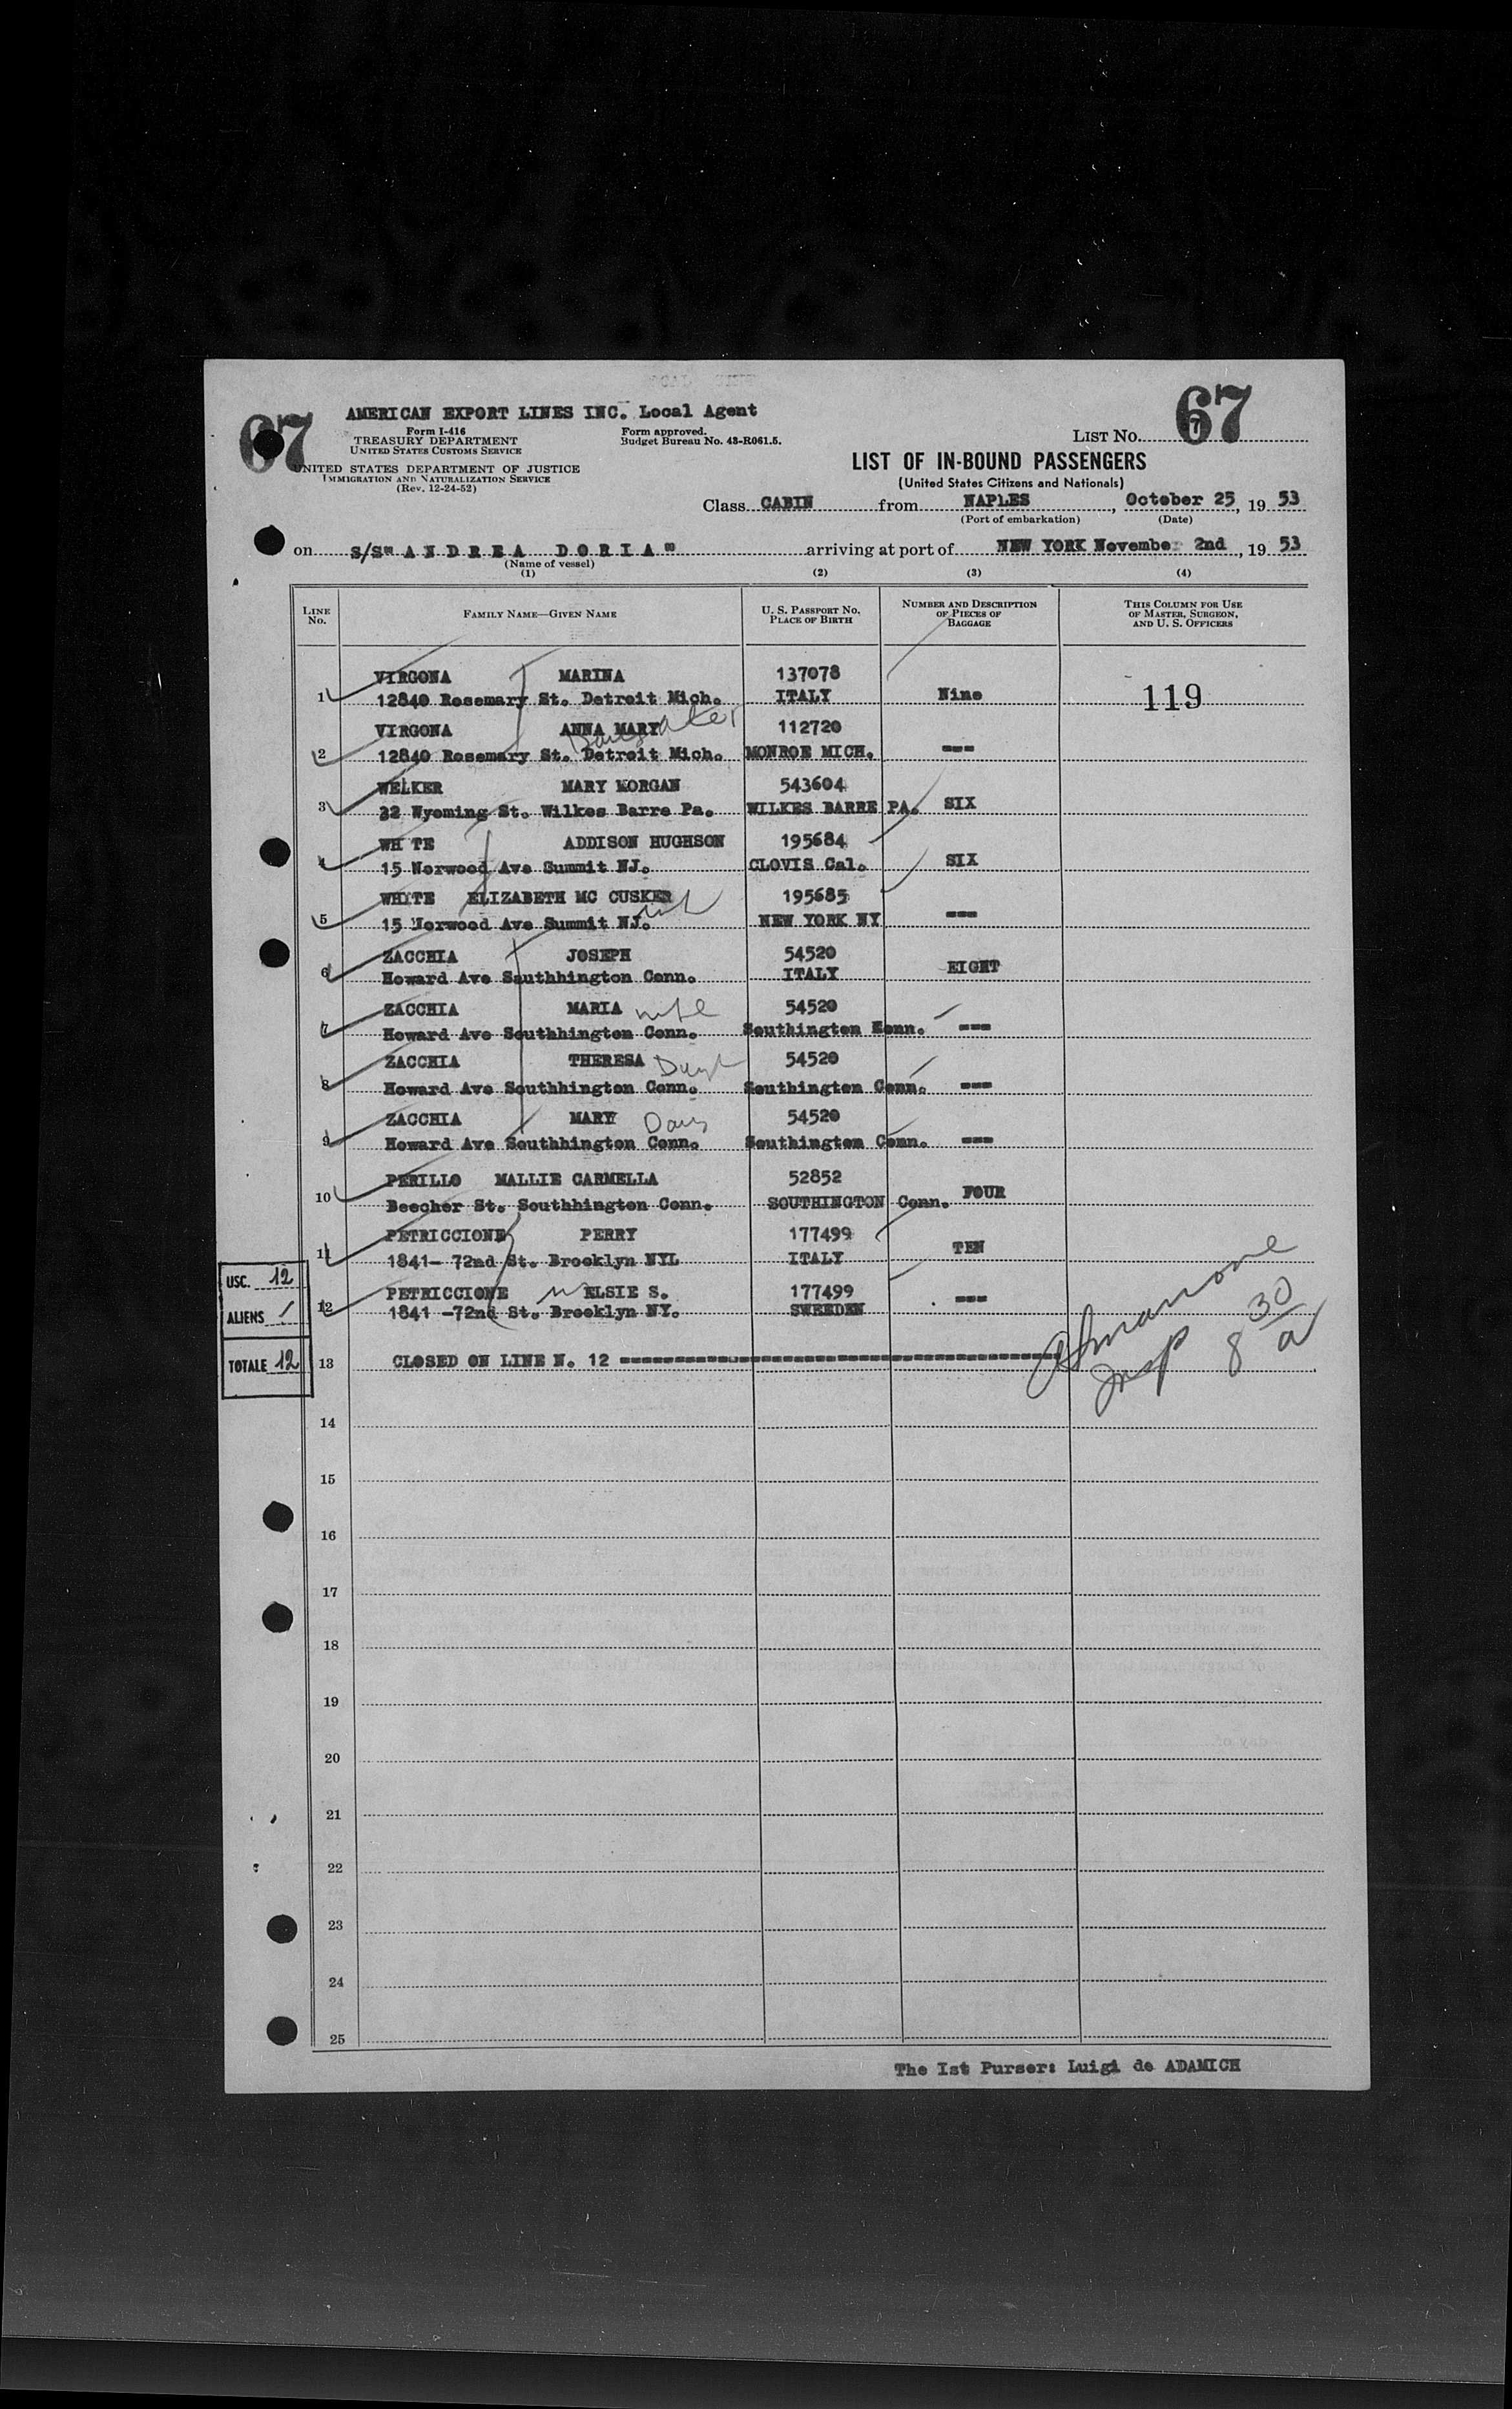 67
67
AMERICAN EXPORT LINES INC. Local Agent
Form I-416
TREASURY DEPARTMENT
UNITED STATES CUSTOMS SERVICE
UNITED STATES DEPARTMENT OF JUSTICE
IMMIGRATION AND NATURALIZATION SERVICE
(Rev. 12-24-52)
Form approved.
Budget Bureau No. 43-R061.5.
LIST NO. 7
LIST OF IN-BOUND PASSENGERS
(United States Citizens and Nationals)
Class CABIN from NAPLES, October 25, 19 53
(Port of embarkation) (Date)
on S/S" A N D R E A D O R I A " arriving at port of NEW YORK November 2nd, 19 53
(Name of vessel)
(1) (2) (3) (4)
LINE NO. FAMILY NAME—GIVEN NAME U. S. PASSPORT NO. PLACE OF BIRTH NUMBER AND DESCRIPTION OF PIECES OF BAGGAGE THIS COLUMN FOR USE OF MASTER, SURGEON, AND U. S. OFFICERS
VIRGONA MARINA 137078
1 12840 Rosemary St. Detroit Mich. ITALY Nine 119
VIRGONA ANNA MARY Daughter 112720
2 12840 Rosemary St. Detroit Mich. MONROE MICH. ---
WELKER MARY MORGAN 543604
3 32 Wyoming St. Wilkes Barre Pa. WILKES BARRE PA. SIX
WH TE ADDISON HUGHSON 195684
4 15 Norwood Ave Summit NJ. CLOVIS Cal. SIX
WHITE ELIZABETH MC CUSKER 195685
5 15 Norwood Ave Summit NJ. NEW YORK NY ---
ZACCHIA JOSEPH 54520
6 Howard Ave Southhington Conn. ITALY EIGHT
ZACCHIA MARIA wife 54520
7 Howard Ave Southhington Conn. Southington Konn. ---
ZACCHIA THERESA Daugt 54520
8 Howard Ave Southhington Conn. Southington Conn. ---
ZACCHIA MARY Daug 54520
9 Howard Ave Southhington Conn. Southington Conn. ---
PERILLO MALLIE CARMELLA 52852
10 Beecher St. Southhington Conn. SOUTHINGTON Conn. FOUR
PETRICCIONE PERRY 177499
11 1841- 72nd St. Brooklyn NYL ITALY TEN
PETRICCIONE w ELSIE S. 177499
12 1841 -72nd St. Brooklyn NY. SWEEDEN ---
USC. 12
ALIENS /
TOTALE 12
13 CLOSED ON LINE N. 12 --------------------
Insp 8 30 a
14
15
16
17
18
19
20
21
22
23
24
25
The Ist Purser: Luigi de ADAMICH